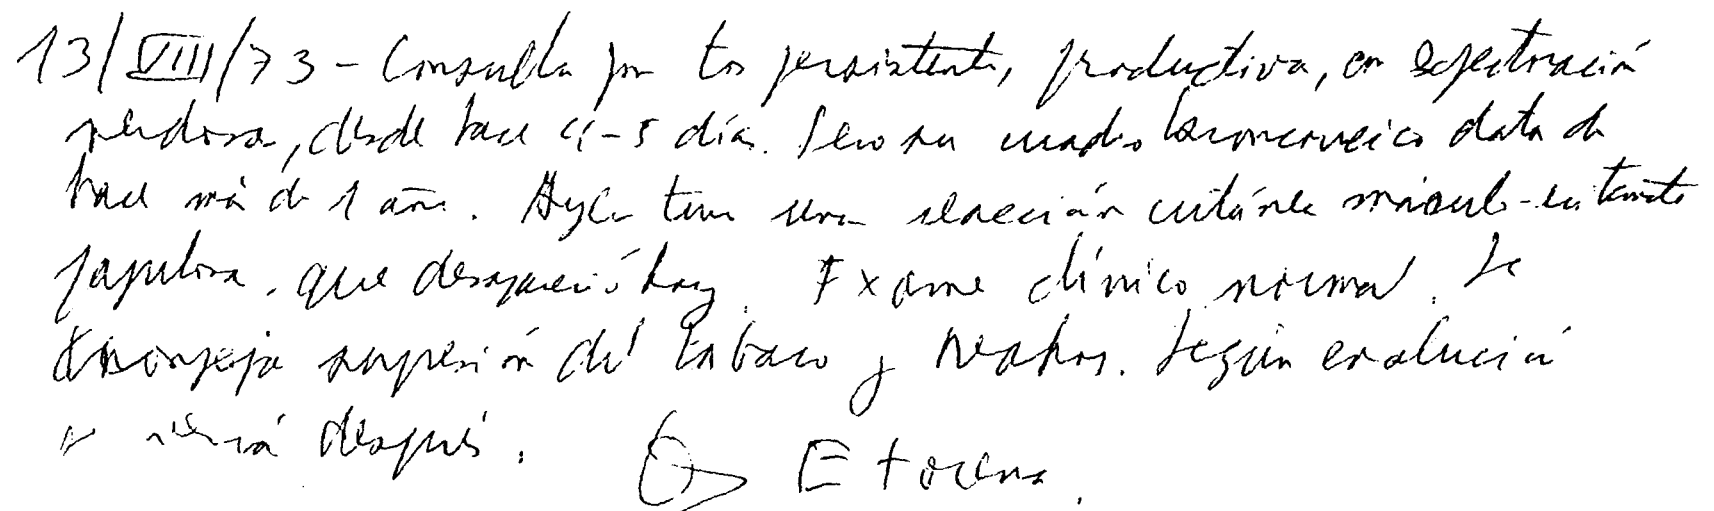 13/VIII/73 - Consulta por tos persistente, productiva, con expectoración
verdosa, desde hace 4-5 días. Pero su cuadro broncorreico data de
hace más de 1 año. Ayer tuvo una reacción cutánea máculo-eritemato
papulosa, que desapareció hoy. Examen clínico normal. Se
aconseja supresión del tabaco y. Según evolución
se verá después.